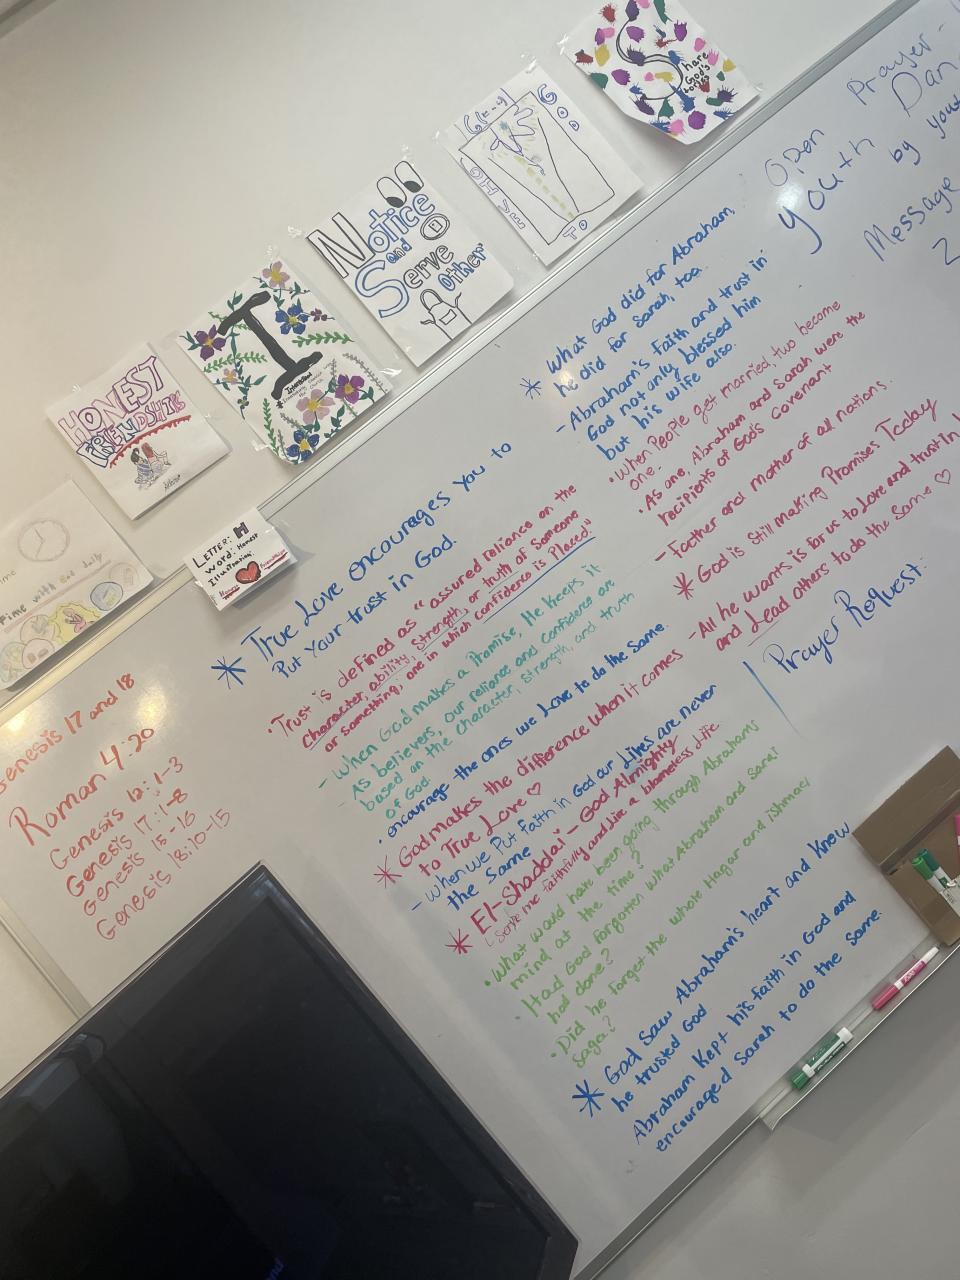 Time with God daily
HONEST
FRIENDSHIPS
I
Notice
and
Serve
other
GOD
TO
S
Share
God's
LETTER: H
Word: Honest
Illustration:
Genesis 17 and 18
Roman 4:20
Genesis 12:1-3
Genesis 17:1-8
Genesis 15-16
Genesis 18:10-15
* True Love encourages you to
Put Your trust in God.
• Trust is defined as "assured reliance on the
character, ability, strength, or truth of someone
or something; one in which confidence is Placed"
- When God makes a Promise, He Keeps it
- As believers, our reliance and confidence are
based on the character, strength, and truth
of God.
• encourage the ones we Love to do the same.
* God makes the difference when it comes
to True Love ♡
- when we Put faith in God our Lives are never
the same
* El-Shaddai - God Almighty
serve me faithfully and live a blameless life
• What would have been going through Abrahams
mind at the time?
• Had God forgotten what Abraham and Sarai
had done?
• Did he forget the whole Hagar and ishmael
saga?
* God saw Abraham's heart and Knew
he trusted God
Abraham Kept his faith in God and
encouraged Sarah to do the same.
* What God did for Abraham,
he did for Sarah, too.
- Abraham's Faith and trust in
God not only blessed him
but his wife also.
• When People get married, two become
one.
• As one, Abraham and Sarah were the
recipients of God's Covenant
- Farther and mother of all nations.
* God is still making Promises Today
- All he wants is for us to Love and trust in
and Lead others to do the same ♡
Prayer Request:
Prayer -
Open
Youth Dan
by yout
Message
2